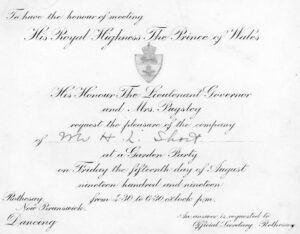 To have the honour of meeting
His Royal Highness The Prince of Wales
His Honour The Lieutenant Governor
and Mrs. Pugsley
request the pleasure of the company
of Mr H. L. Short
at a Garden Party
on Friday the fifteenth day of August
nineteen hundred and nineteen
from 4.30 to 6.30 o'clock p.m.
Rothesay,
New Brunswick.
Dancing
An answer is requested to
Official Secretary Rothesay